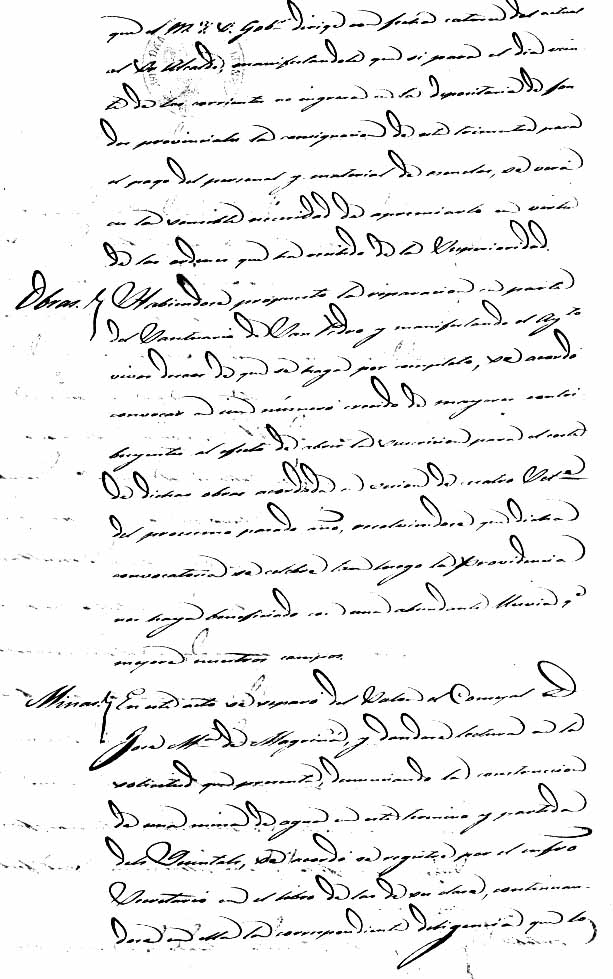 que el M. Y. S. Gobr. dirige con fecha catorce del actual
al Sr. Alcalde, manifestandole que si para el dia vein
te de los corrientes no ingresa en la depositaria de fon
dos provinciales la consignacion de este trimestre para
el pago del personal y material de escuelas, se verá
en la sensible necesidad de apremiarlo en virtud
de las ordenes que ha recibido de la Superioridad.
Obras. Habiendose propuesto la reparacion en parte
del Santuario de San Pedro y manifestando el Ayto
vivos deseos de que se haga por completo, se acordó
convocar a un número crecido de mayores contri
buyentes al efecto de abrir la suscricion para el coste
de dichas obras acordada en sesion de cuatro
del procsimo pasado año, resolviendose que dicha
convocatoria se celebre tan luego la Providencia
nos haya beneficiado con una abundante lluvia qe
mejore nuestros campos.
Minas. En este acto se separó del Salon el Concejal D.
José Ma. de y dandose lectura en la
solicitud que presenta, denunciando la construccion
de una mina de agua en este termino y partida
dels se acordó se registre por el infro
Secretario en el libro de las de su clase, continuan-
dose en ella la correspondiente diligencia que lo